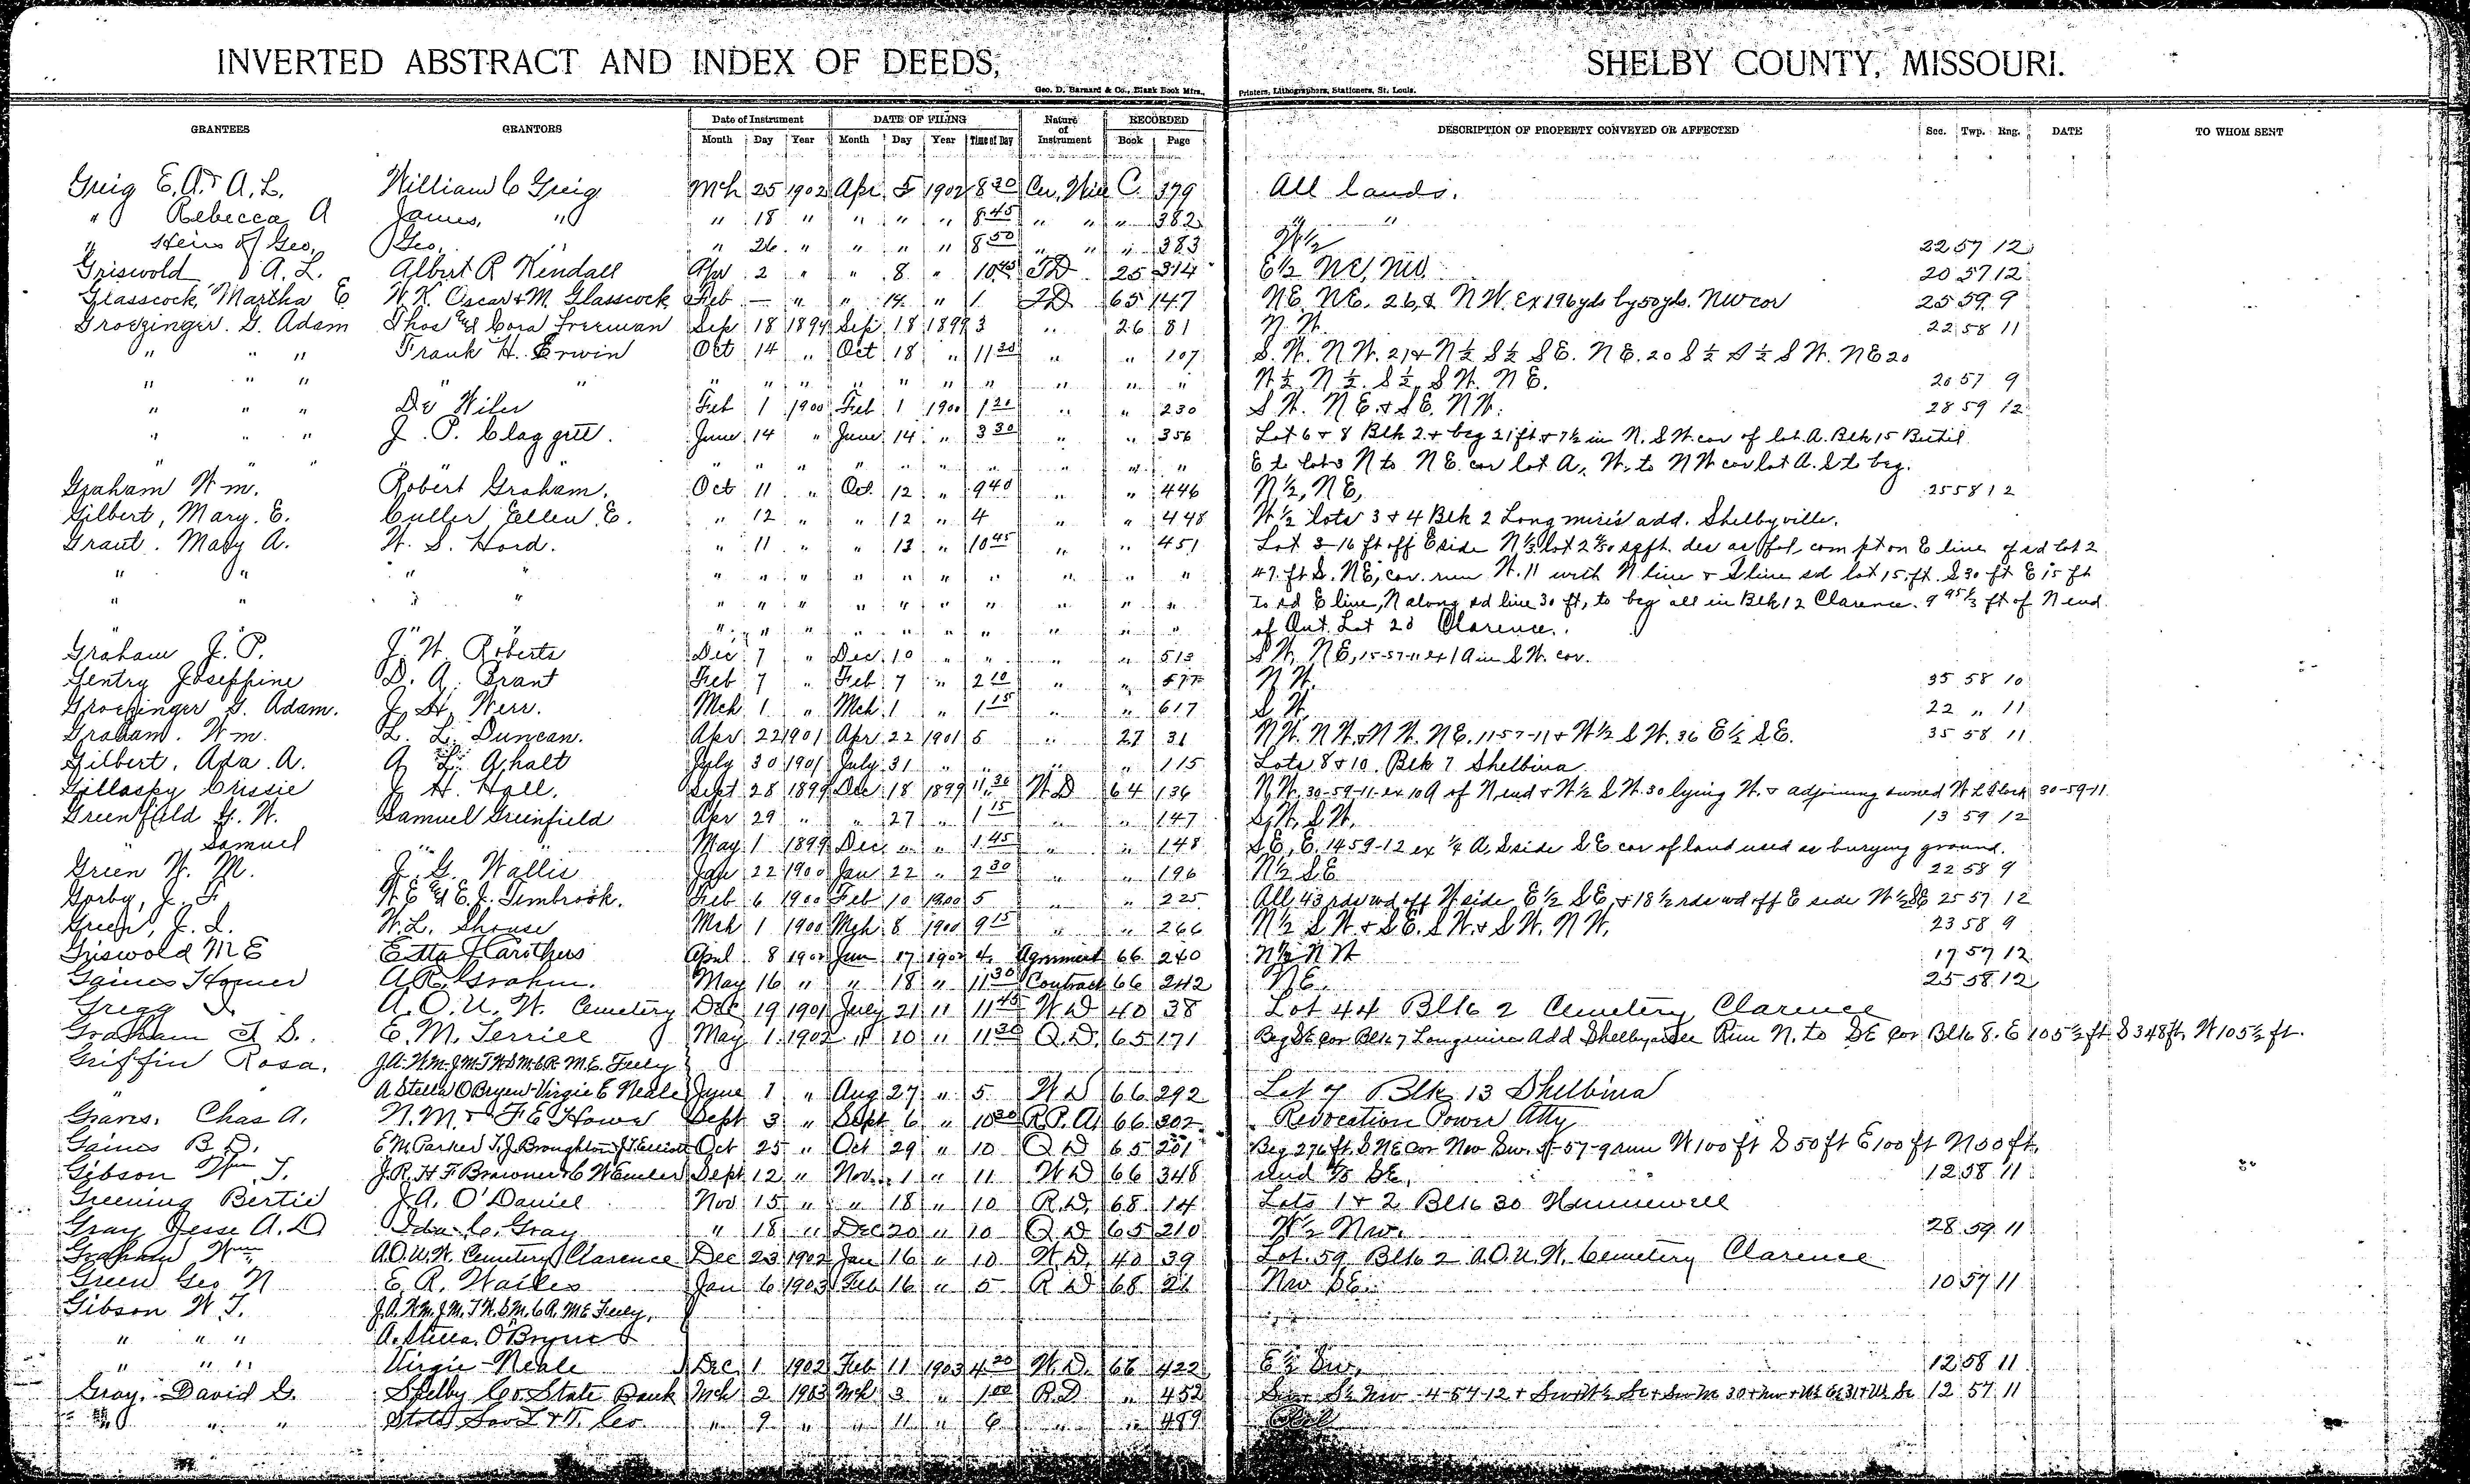 INVERTED ABSTRACT AND INDEX OF DEEDS, SHELBY COUNTY, MISSOURI.
Geo. D. Barnard & Co., Blank Book Mfrs., Printers, Lithographers, Stationers, St. Louis.
GRANTEES GRANTORS Date of Instrument DATE OF FILING Nature of Instrument RECORDED DESCRIPTION OF PROPERTY CONVEYED OR AFFECTED Sec. Twp. Rng. DATE TO WHOM SENT
Month Day Year Month Day Year Time of Day Book Page
Greig E.A. & A.L. William C Greig Mch 25 1902 Apr. 5 1902 8 30 C. 379 All lands.
" Rebecca A James, " " 18 " " " " 8 45 " " " 382 " "
" Heirs of Geo. Geo. " " 26 " " " " 8 50 " " " 383 W 1/2 22 57 12
Griswold A.L. Albert R Kendall Apr 2 " " 8 " 10 45 TD 25 314 E 1/2 NE, NW. 20 57 12
Glasscock, Martha E W.K. Oscar & M. Glasscock Feb — " " 14 " 1 65 147 NE. NE. 26, & NW. Ex 196 yds by 50 yds. NW cor 25 59 9
Groezinger. G. Adam Thos and Cora Freeman Sep 18 1899 Sep 18 1899 3 " 26 81 N.W. 22 58 11
" " " Frank H. Erwin Oct 14 " Oct 18 " 11 30 " " 107 S.W. N W. 21 & N 1/2 S 1/2 SE. NE. 20 S 1/2 S 1/2 S W. NE 20
" " " " " " " " " " " " " " " W 1/2 N 1/2. S 1/2, S W. N E. 20 57 9
" " " Feb 1 1900 Feb 1 1900 1 20 " " 230 S W. N E. & S E. N W. 28 59 12
" " " J. P. Claggett. June 14 " June 14 " 3 30 " " 356 Lot 6 & 8 Blk 2 & beg 21 ft & 7 1/2 in N. S W. cor of lot. A. Blk 15 Bethel
" " " " " " " " " " " " " " E to lot 3 N to N E. cor lot A, W. to N W cor lot A. S to beg.
Graham Wm. Robert Graham. Oct 11 " Oct. 12 " 9 40 " " 446 N 1/2, NE, 25 58 12
Gilbert, Mary. E. Culler Ellen E. " 12 " " 12 " 4 " " 448 W 1/2 lots 3 & 4 Blk 2 Longmire's add. Shelbyville.
Grant. Mary A. W. S. Hord. " 11 " " 13 " 10 45 " " 451 Lot 3-16 ft off E side N 1/3 lot 2 com pt on E line of sd lot 2
" " " " " " " " " " " " " " 47 ft S. NE, cor. run W. 11 with N line & S line sd lot 15 ft. S 30 ft E 15 ft
" " " " " " " " " " " " " " to sd E line, N along sd line 30 ft, to beg all in Blk 12 Clarence. ft of N end
" " " " " " " " " " " " " of Out Lot 20 Clarence.
Graham J. P. J. W. Roberts Dec 7 " Dec. 10 " " " " 513 S W. N E, 15-57-11 ex 1 A in S W. cor.
Gentry Joseffine D. A. Grant Feb 7 " Feb 7 " 2 10 " " 577 N W. 35 58 10
Groezinger G. Adam. J. H. Mch 1 " Mch 1 " 1 15 " " 617 S. W. 22 " 11
Graham. Wm. L. L. Duncan. Apr 22 1901 Apr 22 1901 5 " 27 31 N W. N W. & N W. N E. 11 57-11 & W 1/2 S W. 36 E 1/2 S E. 35 58 11
Gilbert. Ada. A. A L. Ahalt July 30 1901 July 31 " " " " 115 Lots 8 & 10. Blk 7 Shelbina
Gillaspy Crissie J H. Hall. Sept 28 1899 Dec 18 1899 11 30 W D 64 136 N W. 30-59-11 ex 10 A of N end & W 1/2 S W. 30 lying W. & adjoining owned W L Stock 30-59-11
Greenfield G. W. Samuel Greenfield Apr 29 " " 27 " 1 15 " " 147 S. W. S W. 13 59 12
" Samuel " " May 1 1899 Dec " " 1 45 " " 148 S E, E. 14 59-12 ex 1/4 A, S side S E cor of land used as burying ground.
Green W. M. J. G. Wallis Jan 22 1900 Jan 22 " 2 30 " " 196 N 1/2 S E 22 58 9
Gorby, J. F W E and E. J. Timbrook. Feb 6 1900 Feb 10 1900 5 " " 225 All 43 rds wd off W side E 1/2 S E, & 18 1/2 rds wd off E side W 1/2 SE 25 57 12
Green, J. I. W. L. Shouse Mch 1 1900 Mch 8 1900 9 15 " " 266 N 1/2 S W. & S E. S W. & S W. N W. 23 58 9
Griswold M E Etta Carothers April 8 1902 Jun 17 1902 4 Agreement 66 240 N 1/2 N W 17 57 12
Gaines Homer A. R. Grahm. May 16 " " 18 " 11 30 Contract 66 242 N E. 25 58 12
Gregg A. O. U. W. Cemetery Dec 19 1901 July 21 11 11 45 W D 40 38 Lot 44 Blk 2 Cemetery Clarence
Graham E. M. Terrill May 1 1902 " 10 " 11 30 Q. D. 65 171 Beg SE cor Blk 7 Longmires Add Shelbyville Run N. to SE cor Blk 8. E 105 1/2 ft S 348 ft, W 105 1/2 ft.
Griffin Rosa. J.A. W.M. J.M. T.W. S.M. C.R. M.E. Feely
" A Stella O Bryen Virgie E Neale June 1 " Aug 27 " 5 W D 66 292 Lot 7 Blk 13 Shelbina
Graves. Chas A. N. M. & F E Howe Sept 3 " Sept 6 " 10 30 R. P. A. 66 302 Revocation Power Atty
Gaines B. D. E M Parker T. J. Broughton J T Elliott Oct 25 " Oct 29 " 10 Q D 65 201 Beg 276 ft. S NE cor Nw Sw. 57-9 run W 100 ft S 50 ft E 100 ft N 50 ft.
Gibson Wm T. J. R. H F Browner & C W Sept 12 " Nov. 1 " 11 W D 66 348 und SE. 12 58 11
Greening Bertie J. A. O'Daniel Nov 15 " " 18 " 10 R. D. 68 14 Lots 1 & 2 Blk 30 Hunnewell
Gray Jesse A. D Ida C. Gray " 18 " Dec 20 " 10 Q D 65 210 W 1/2 Nw. 28 59 11
Graham Wm. A. O. U. W. Cemetery Clarence Dec 23 1902 Jan 16 " 10 W D. 40 39 Lot. 59 Blk 2 A. O. U. W. Cemetery Clarence
Green Geo N E. R. Wailes Jan 6 1903 Feb 16 " 5 R D 68 21 Nw SE. 10 57 11
Gibson W. T. J. A. W.M. J.M. T.W. S.M. C.A. M.E Feely.
" " " A. Stella. O'Bryne
" " " Virgie Neale Dec 1 1902 Feb 11 1903 4 20 W. D. 66 422 E 1/2 Sw, 12 58 11
Gray. David G. Shelby Co. State Bank Mch 2 1903 Mch 3 " 1 00 R. D " 452 12 57 11
" " " " 9 " " 11 " 6 " " 489